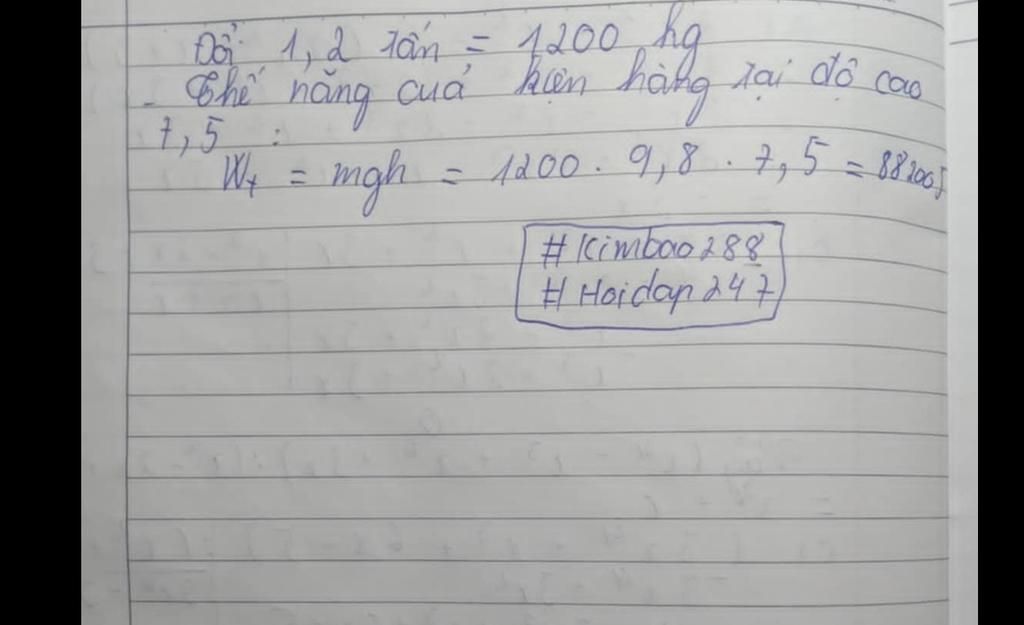 Đổi 1,2 tấn = 1200 kg
- Thế năng của kiện hàng tại độ cao
7,5 :
Wt = mgh = 1200 . 9,8 . 7,5 = 88200J
#Kimbao288
#Hoidap247